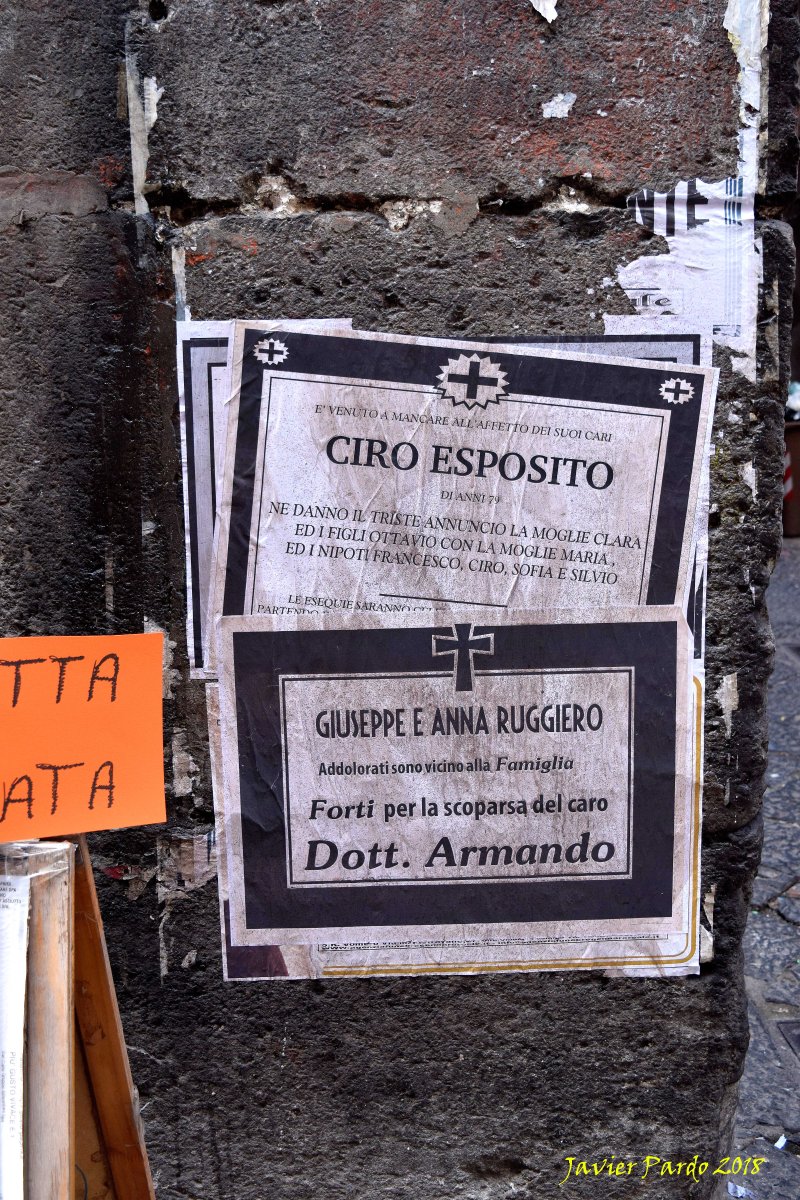 NTE
E' VENUTO A MANCARE ALL'AFFETTO DEI SUOI CARI
CIRO ESPOSITO
DI ANNI 79
NE DANNO IL TRISTE ANNUNCIO LA MOGLIE CLARA
ED I FIGLI OTTAVIO CON LA MOGLIE MARIA ,
ED I NIPOTI FRANCESCO, CIRO, SOFIA E SILVIO
LE ESEQUIE SARANNO
PARTENDO
GIUSEPPE E ANNA RUGGIERO
Addolorati sono vicino alla Famiglia
Forti per la scoparsa del caro
Dott. Armando
TTA
ATA
Javier Pardo 2018